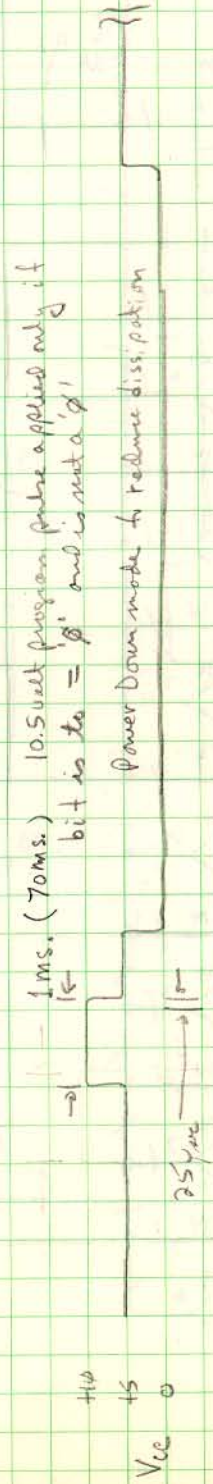 1 ms. (70ms.) 10.5 volt program pulse applied only if
bit is to = 'ø' and is not a 'ø'
+1ø
+5
0
Vcc
Power Down mode to reduce dissipation
25 μsec